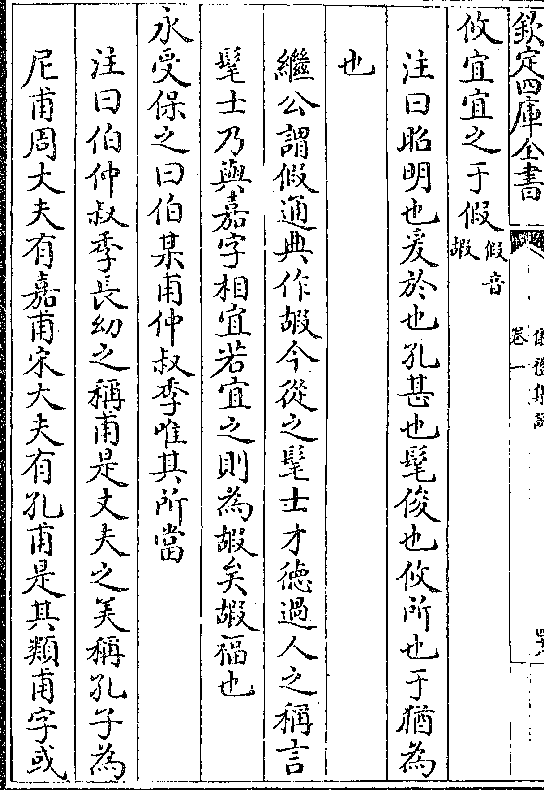 欽定四庫全書
儀禮集說
卷一
攸宜宜之于假假音嘏
注曰昭明也爰於也孔甚也髦俊也攸所也于猶為
也
繼公謂假通典作嘏今從之髦士才德過人之稱言
髦士乃與嘉字相宜若宜之則為嘏矣嘏福也
永受保之曰伯某甫仲叔季唯其所當
注曰伯仲叔季長幼之稱甫是丈夫之美稱孔子為
尼甫周大夫有嘉甫宋大夫有孔甫是其類甫字或